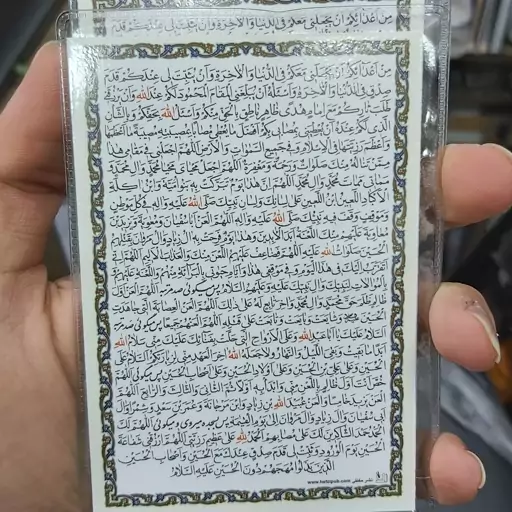 مِنْ اَعْدَائِكُمْ اَنْ يَجْعَلَنى مَعَكُمْ فِى الدُّنْيَا وَالْاخِرَةِ وَاَنْ يُثَبِّتَ لى عِنْدَكُمْ قَدَمَ
مِنْ اَعْدَائِكُمْ اَنْ يَجْعَلَنى مَعَكُمْ فِى الدُّنْيَا وَالْاخِرَةِ وَاَنْ يُثَبِّتَ لى عِنْدَكُمْ قَدَمَ
صِدْقٍ فِى الدُّنْيَا وَالْاخِرَةِ وَاَسْئَلُهُ اَنْ يُبَلِّغَنِى الْمَقَامَ الْمَحْمُودَ لَكُمْ عِنْدَ اللهِ وَاَنْ يَرْزُقَنى
طَلَبَ ثَارِكُمْ مَعَ اِمَامِ هُدًى ظَاهِرٍ نَاطِقٍ بِالْحَقِّ مِنْكُمْ وَاَسْئَلُ اللهَ بِحَقِّكُمْ وَبِالشَّاْنِ
الَّذى لَكُمْ عِنْدَهُ اَنْ يُعْطِيَنى بِمُصَابى بِكُمْ اَفْضَلَ مَا يُعْطى مُصَاباً بِمُصيبَتِهِ مُصيبَةً مَا اَعْظَمَهَا
وَاَعْظَمَ رَزِيَّتَهَا فِى الْاِسْلَامِ وَفى جَميعِ السَّمٰوَاتِ وَالْاَرْضِ اَللّهُمَّ اجْعَلْنى فى مَقَامى هذَا
مِمَّنْ تَنَالُهُ مِنْكَ صَلَوَاتٌ وَرَحْمَةٌ وَمَغْفِرَةٌ اَللّهُمَّ اجْعَلْ مَحْيَاىَ مَحْيَا مُحَمَّدٍ وَالِ مُحَمَّدٍ
وَمَمَاتى مَمَاتَ مُحَمَّدٍ وَالِ مُحَمَّدٍ اَللّهُمَّ اِنَّ هذَا يَوْمٌ تَبَرَّكَتْ بِهِ بَنُو اُمَيَّةَ وَابْنُ اكِلَةِ
الْاَكْبَادِ اللَّعينُ ابْنُ اللَّعينِ عَلى لِسَانِكَ وَلِسَانِ نَبِيِّكَ صَلَّى اللهُ عَلَيْهِ وَالِهِ فى كُلِّ مَوْطِنٍ
وَمَوْقِفٍ وَقَفَ فيهِ نَبِيُّكَ صَلَّى اللهُ عَلَيْهِ وَالِهِ اَللّهُمَّ الْعَنْ اَبَا سُفْيَانَ وَمُعٰوِيَةَ وَيَزيدَ بْنَ
مُعَاوِيَةَ عَلَيْهِمْ مِنْكَ اللَّعْنَةُ اَبَدَ الْابِدينَ وَهذَا يَوْمٌ فَرِحَتْ بِهِ الُ زِيَادٍ وَالُ مَرْوَانَ بِقَتْلِهِمُ
الْحُسَيْنَ صَلَوَاتُ اللهِ عَلَيْهِ اَللّهُمَّ فَضَاعِفْ عَلَيْهِمُ اللَّعْنَ مِنْكَ وَالْعَذَابَ الْاَليمَ اَللّهُمَّ اِنّى
اَتَقَرَّبُ اِلَيْكَ فى هذَا الْيَوْمِ وَفى مَوْقِفى هذَا وَاَيَّامِ حَيٰوتى بِالْبَرَائَةِ مِنْهُمْ وَاللَّعْنَةِ عَلَيْهِمْ
وَبِالْمُوَالَاتِ لِنَبِيِّكَ وَالِ نَبِيِّكَ عَلَيْهِ وَعَلَيْهِمُ السَّلَامُ پس میگوئی صد مرتبه اَللّهُمَّ الْعَنْ اَوَّلَ
ظَالِمٍ ظَلَمَ حَقَّ مُحَمَّدٍ وَالِ مُحَمَّدٍ وَاخِرَ تَابِعٍ لَهُ عَلى ذلِكَ اَللّهُمَّ الْعَنِ الْعِصَابَةَ الَّتى جَاهَدَتِ
الْحُسَيْنَ وَشَايَعَتْ وَبَايَعَتْ وَتَابَعَتْ عَلى قَتْلِهِ اَللّهُمَّ الْعَنْهُمْ جَميعاً پس میگوئی صد مرتبه
اَلسَّلَامُ عَلَيْكَ يَا اَبَا عَبْدِ اللهِ وَعَلَى الْاَرْوَاحِ الَّتى حَلَّتْ بِفِنَائِكَ عَلَيْكَ مِنّى سَلَامُ اللهِ
اَبَداً مَا بَقيتُ وَبَقِىَ اللَّيْلُ وَالنَّهَارُ وَلَا جَعَلَهُ اللهُ اخِرَ الْعَهْدِ مِنّى لِزِيَارَتِكُمْ اَلسَّلَامُ عَلَى
الْحُسَيْنِ وَعَلى عَلِىِّ بْنِ الْحُسَيْنِ وَعَلى اَوْلَادِ الْحُسَيْنِ وَعَلى اَصْحَابِ الْحُسَيْنِ پس میگوئی اَللّهُمَّ
خُصَّ اَنْتَ اَوَّلَ ظَالِمٍ بِاللَّعْنِ مِنّى وَابْدَاْ بِهِ اَوَّلًا ثُمَّ الثَّانِىَ وَالثَّالِثَ وَالرَّابِعَ اَللّهُمَّ
الْعَنْ يَزيدَ خَامِساً وَالْعَنْ عُبَيْدَ اللهِ بْنَ زِيَادٍ وَابْنَ مَرْجَانَةَ وَعُمَرَ بْنَ سَعْدٍ وَشِمْراً وَالَ
اَبى سُفْيَانَ وَالَ زِيَادٍ وَالَ مَرْوَانَ اِلى يَوْمِ الْقِيٰمَةِ پس بسجده میروی و میگوئی اَللّهُمَّ لَكَ
الْحَمْدُ حَمْدَ الشَّاكِرينَ لَكَ عَلى مُصَابِهِمْ اَلْحَمْدُ لِلّهِ عَلى عَظيمِ رَزِيَّتى اَللّهُمَّ ارْزُقْنى شَفَاعَةَ
الْحُسَيْنِ يَوْمَ الْوُرُودِ وَثَبِّتْ لى قَدَمَ صِدْقٍ عِنْدَكَ مَعَ الْحُسَيْنِ وَاَصْحَابِ الْحُسَيْنِ
الَّذينَ بَذَلُوا مُهَجَهُمْ دُونَ الْحُسَيْنِ عَلَيْهِ السَّلَامُ